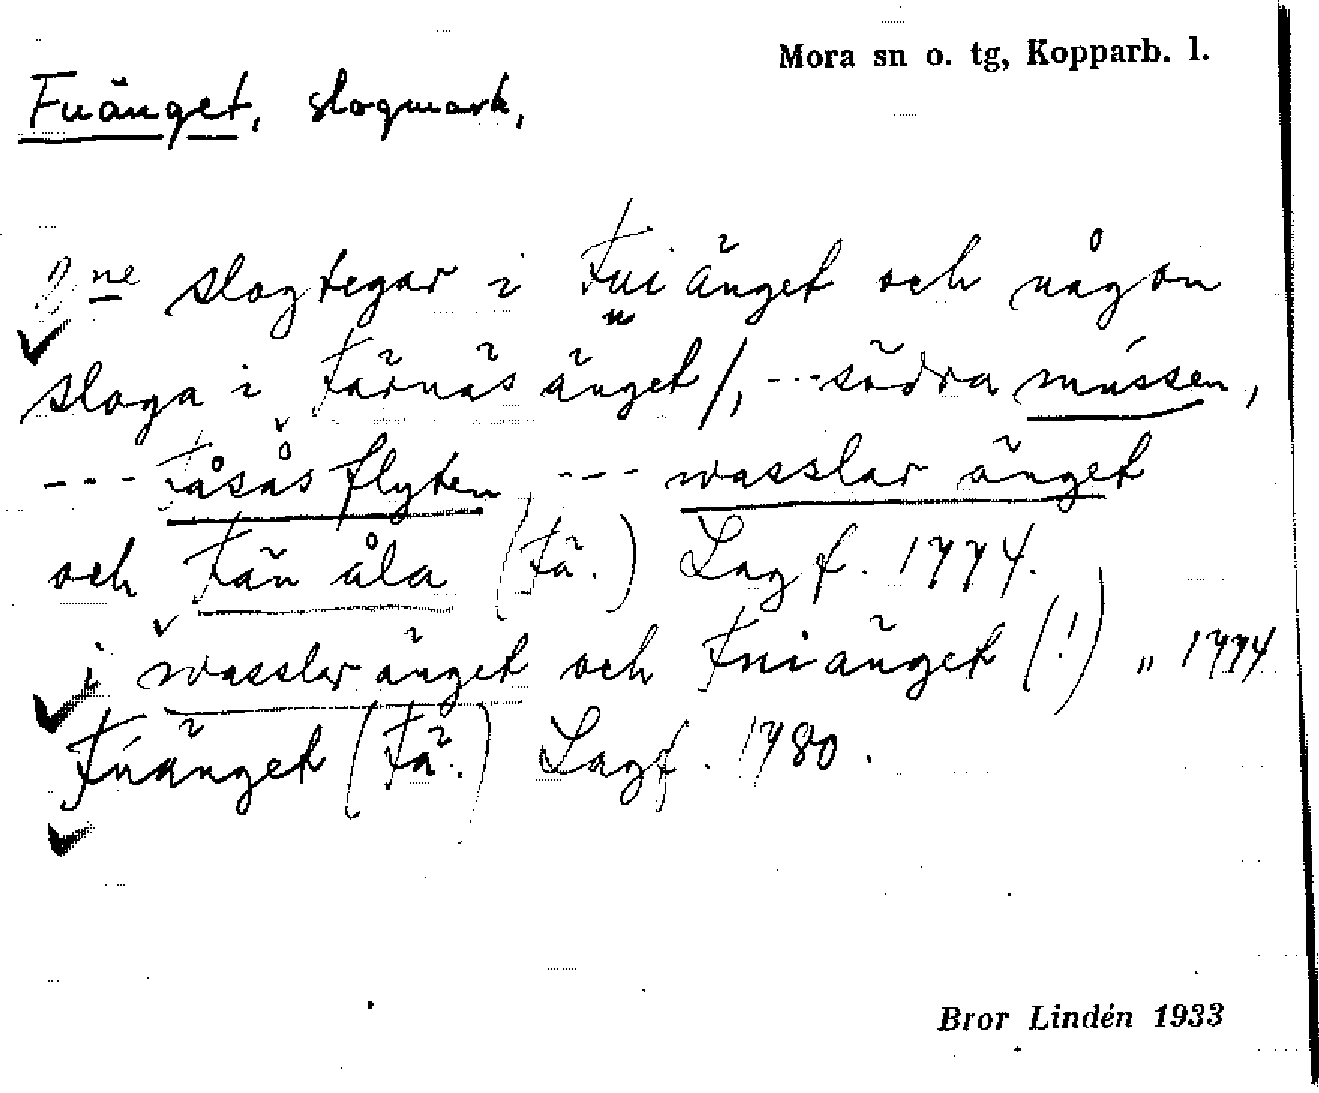 Mora sn o. tg, Kopparb. l.
Fuänget, slogmark,
2ne slogtegar i Fuiänget och någon
sloga i Färnäs änget/, --- södra mússen,
--- Fåsås flyten --- wasslar änget
och Fän åla (Fä.) Lagf. 1774.
i wasslar änget och Fniänget (!) „ 1774
Fúänget (Fä.) Lagf. 1780.
Bror Lindén 1933